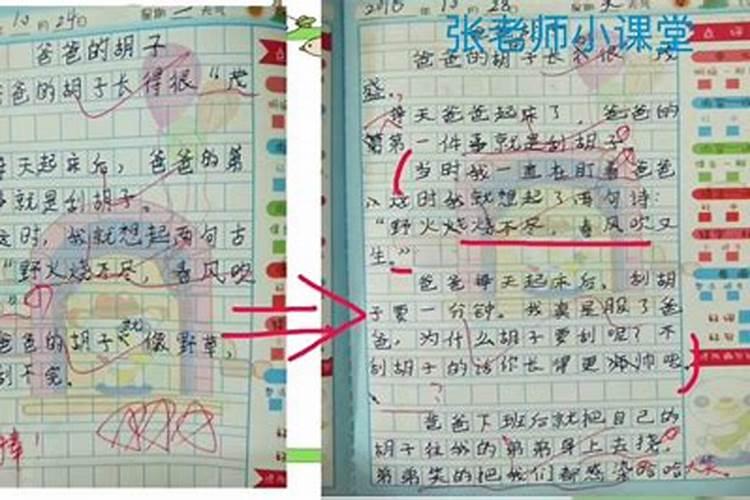 10 24日 星期二 天气
爸爸的胡子
爸爸的胡子长得很“茂
每天起床后，爸爸的第
事就是刮胡子。
这时，我就想起两句古
“野火烧不尽，春风吹
爸爸的胡子就像野草，
刮不完。
棒！
张老师小课堂
2018年10月28日
爸爸的胡子长得很“茂
盛。
每天爸爸起床了，爸爸的
第一件事就是刮胡子。
当时我一直在盯着爸爸
这时我就想起了两句诗：
“野火烧不尽，春风吹又
生。”
爸爸每天起床后，刮胡
子要一分钟。我真是服了爸
爸，为什么胡子要刮呢？不
刮胡子的话你长得更帅呢
？
爸爸下班后就把自己的
胡子往我的弟弟身上去挠，
弟弟笑的把我们都感染哈哈大笑。